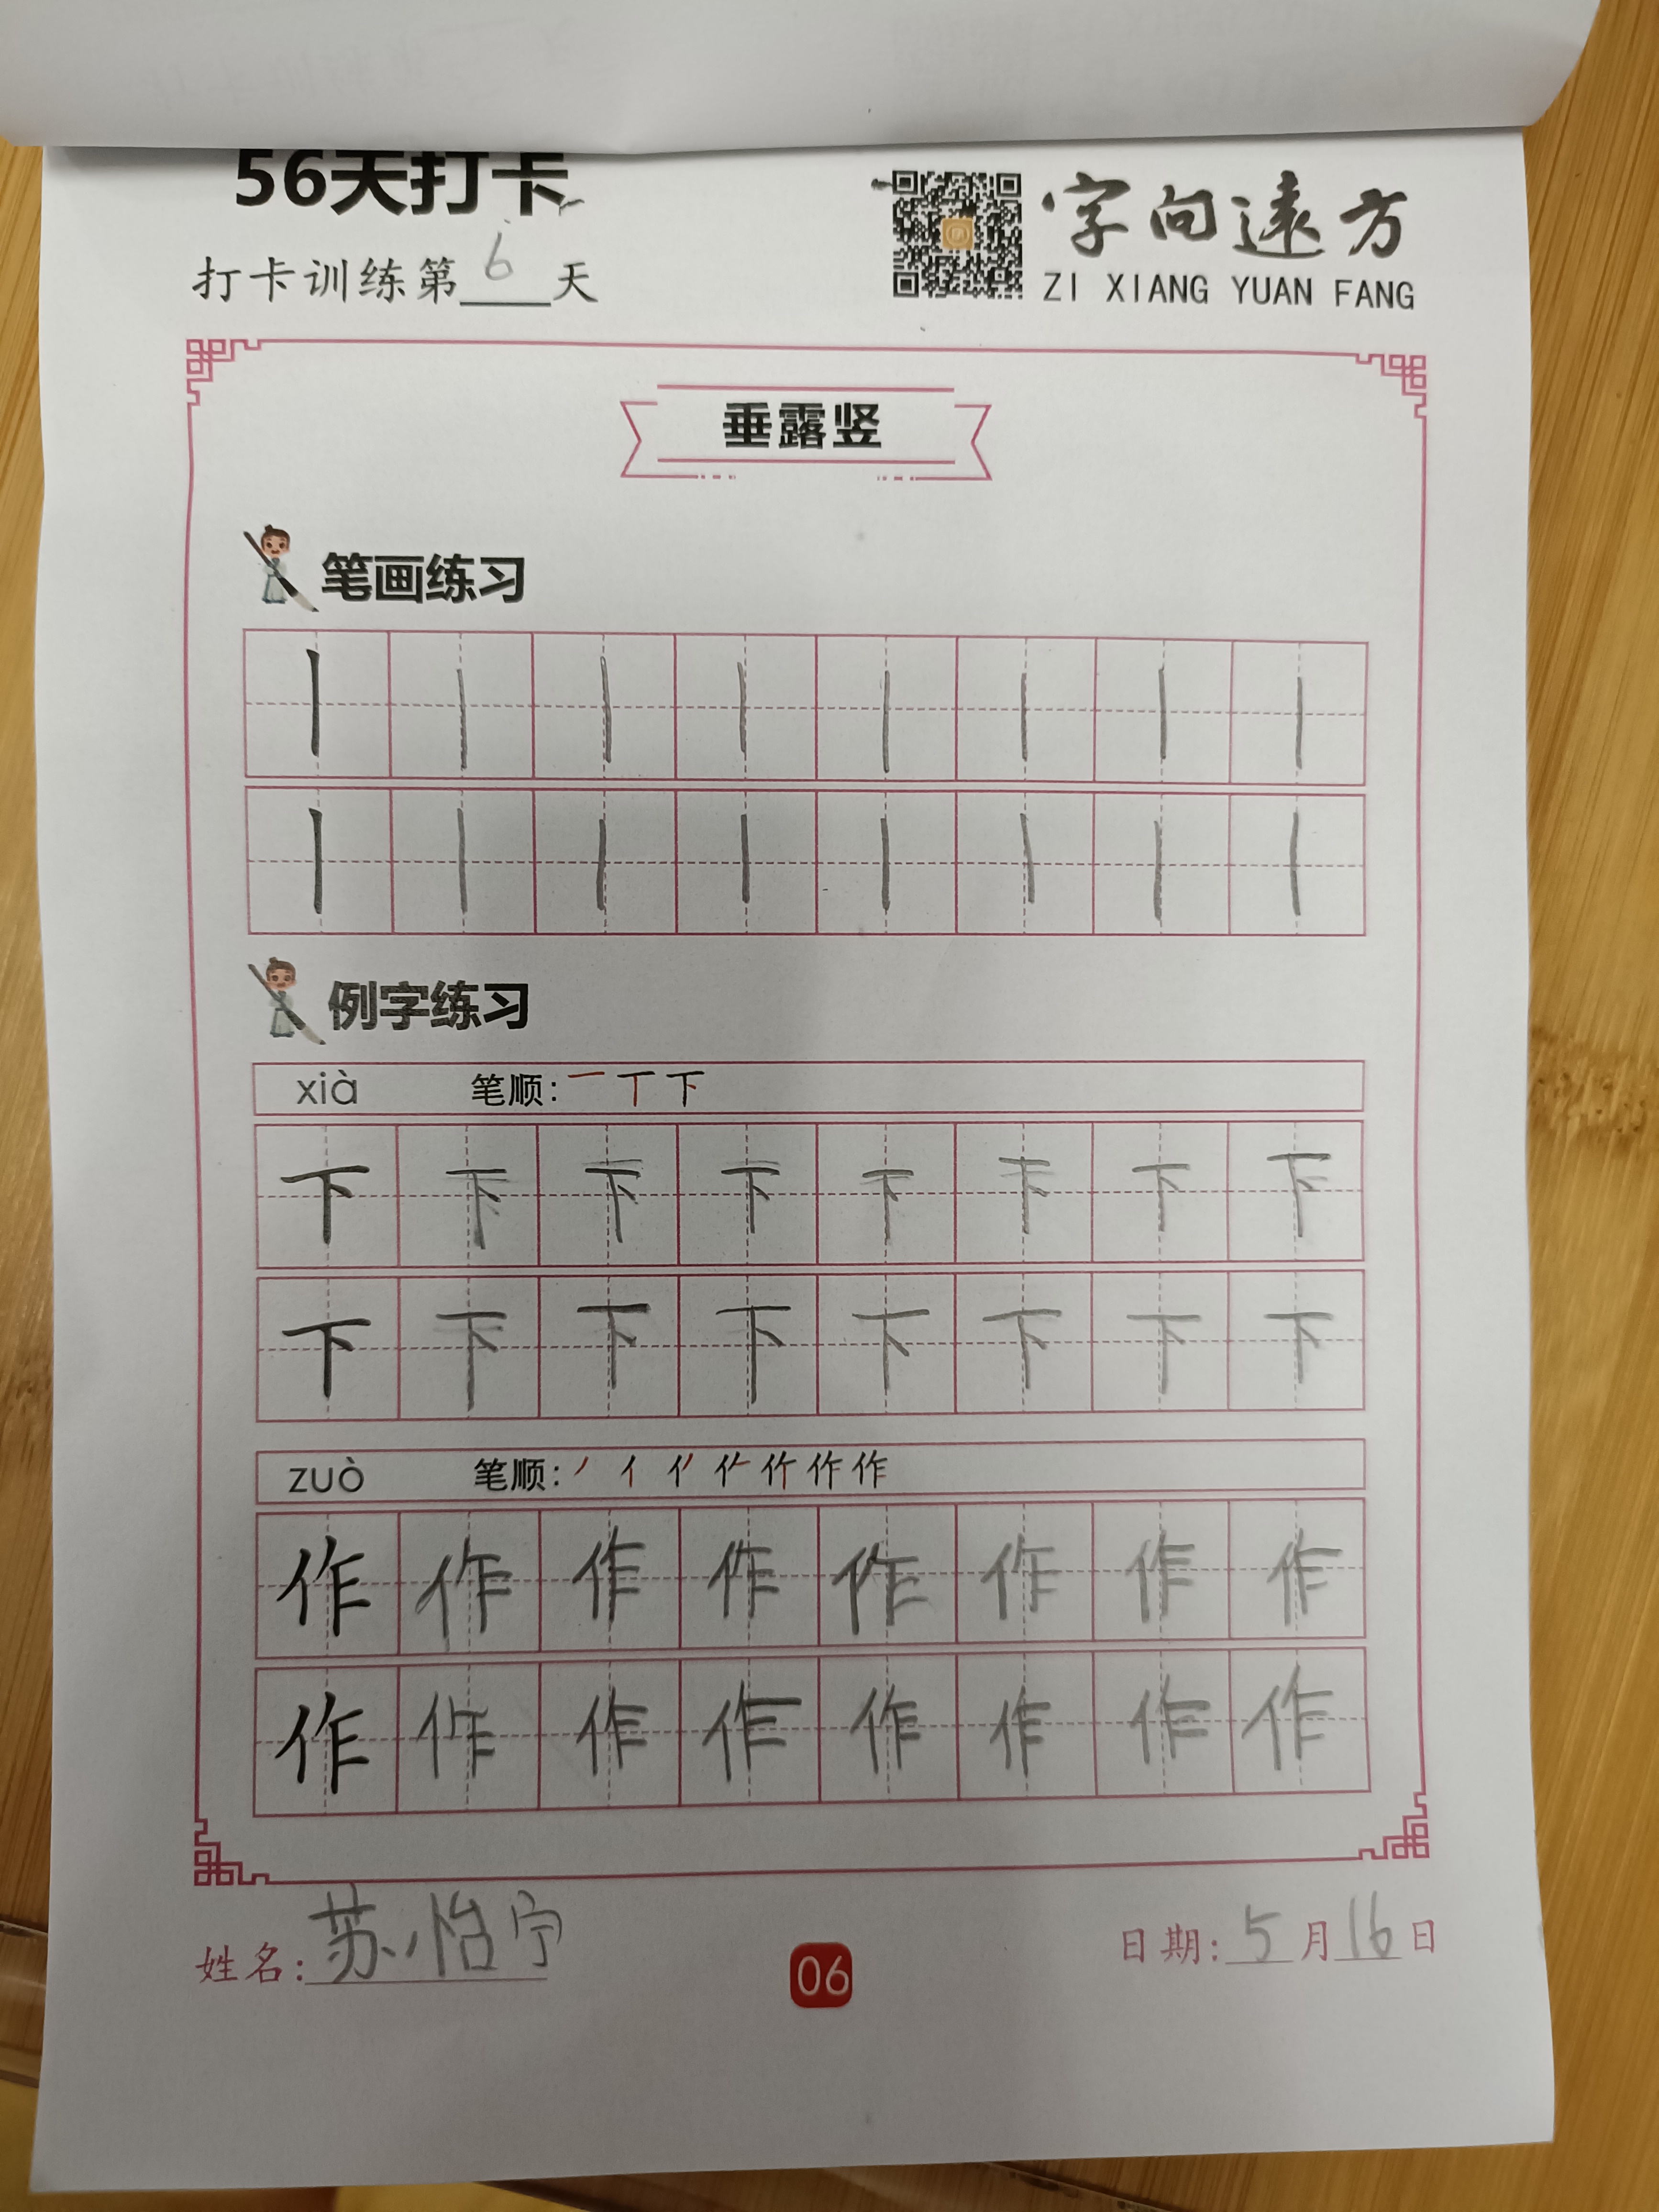 56天打卡
打卡训练第6天
字向遠方
ZI XIANG YUAN FANG
垂露竖
笔画练习
丨丨丨丨丨丨丨丨
丨丨丨丨丨丨丨丨
例字练习
xià 笔顺: 一 丅 下
下下下下下下下下
下下下下下下下下
zuò 笔顺: 丿 亻 作
作作作作作作作作
作作作作作作作作
姓名: 苏怡宁
06
日期: 5月16日